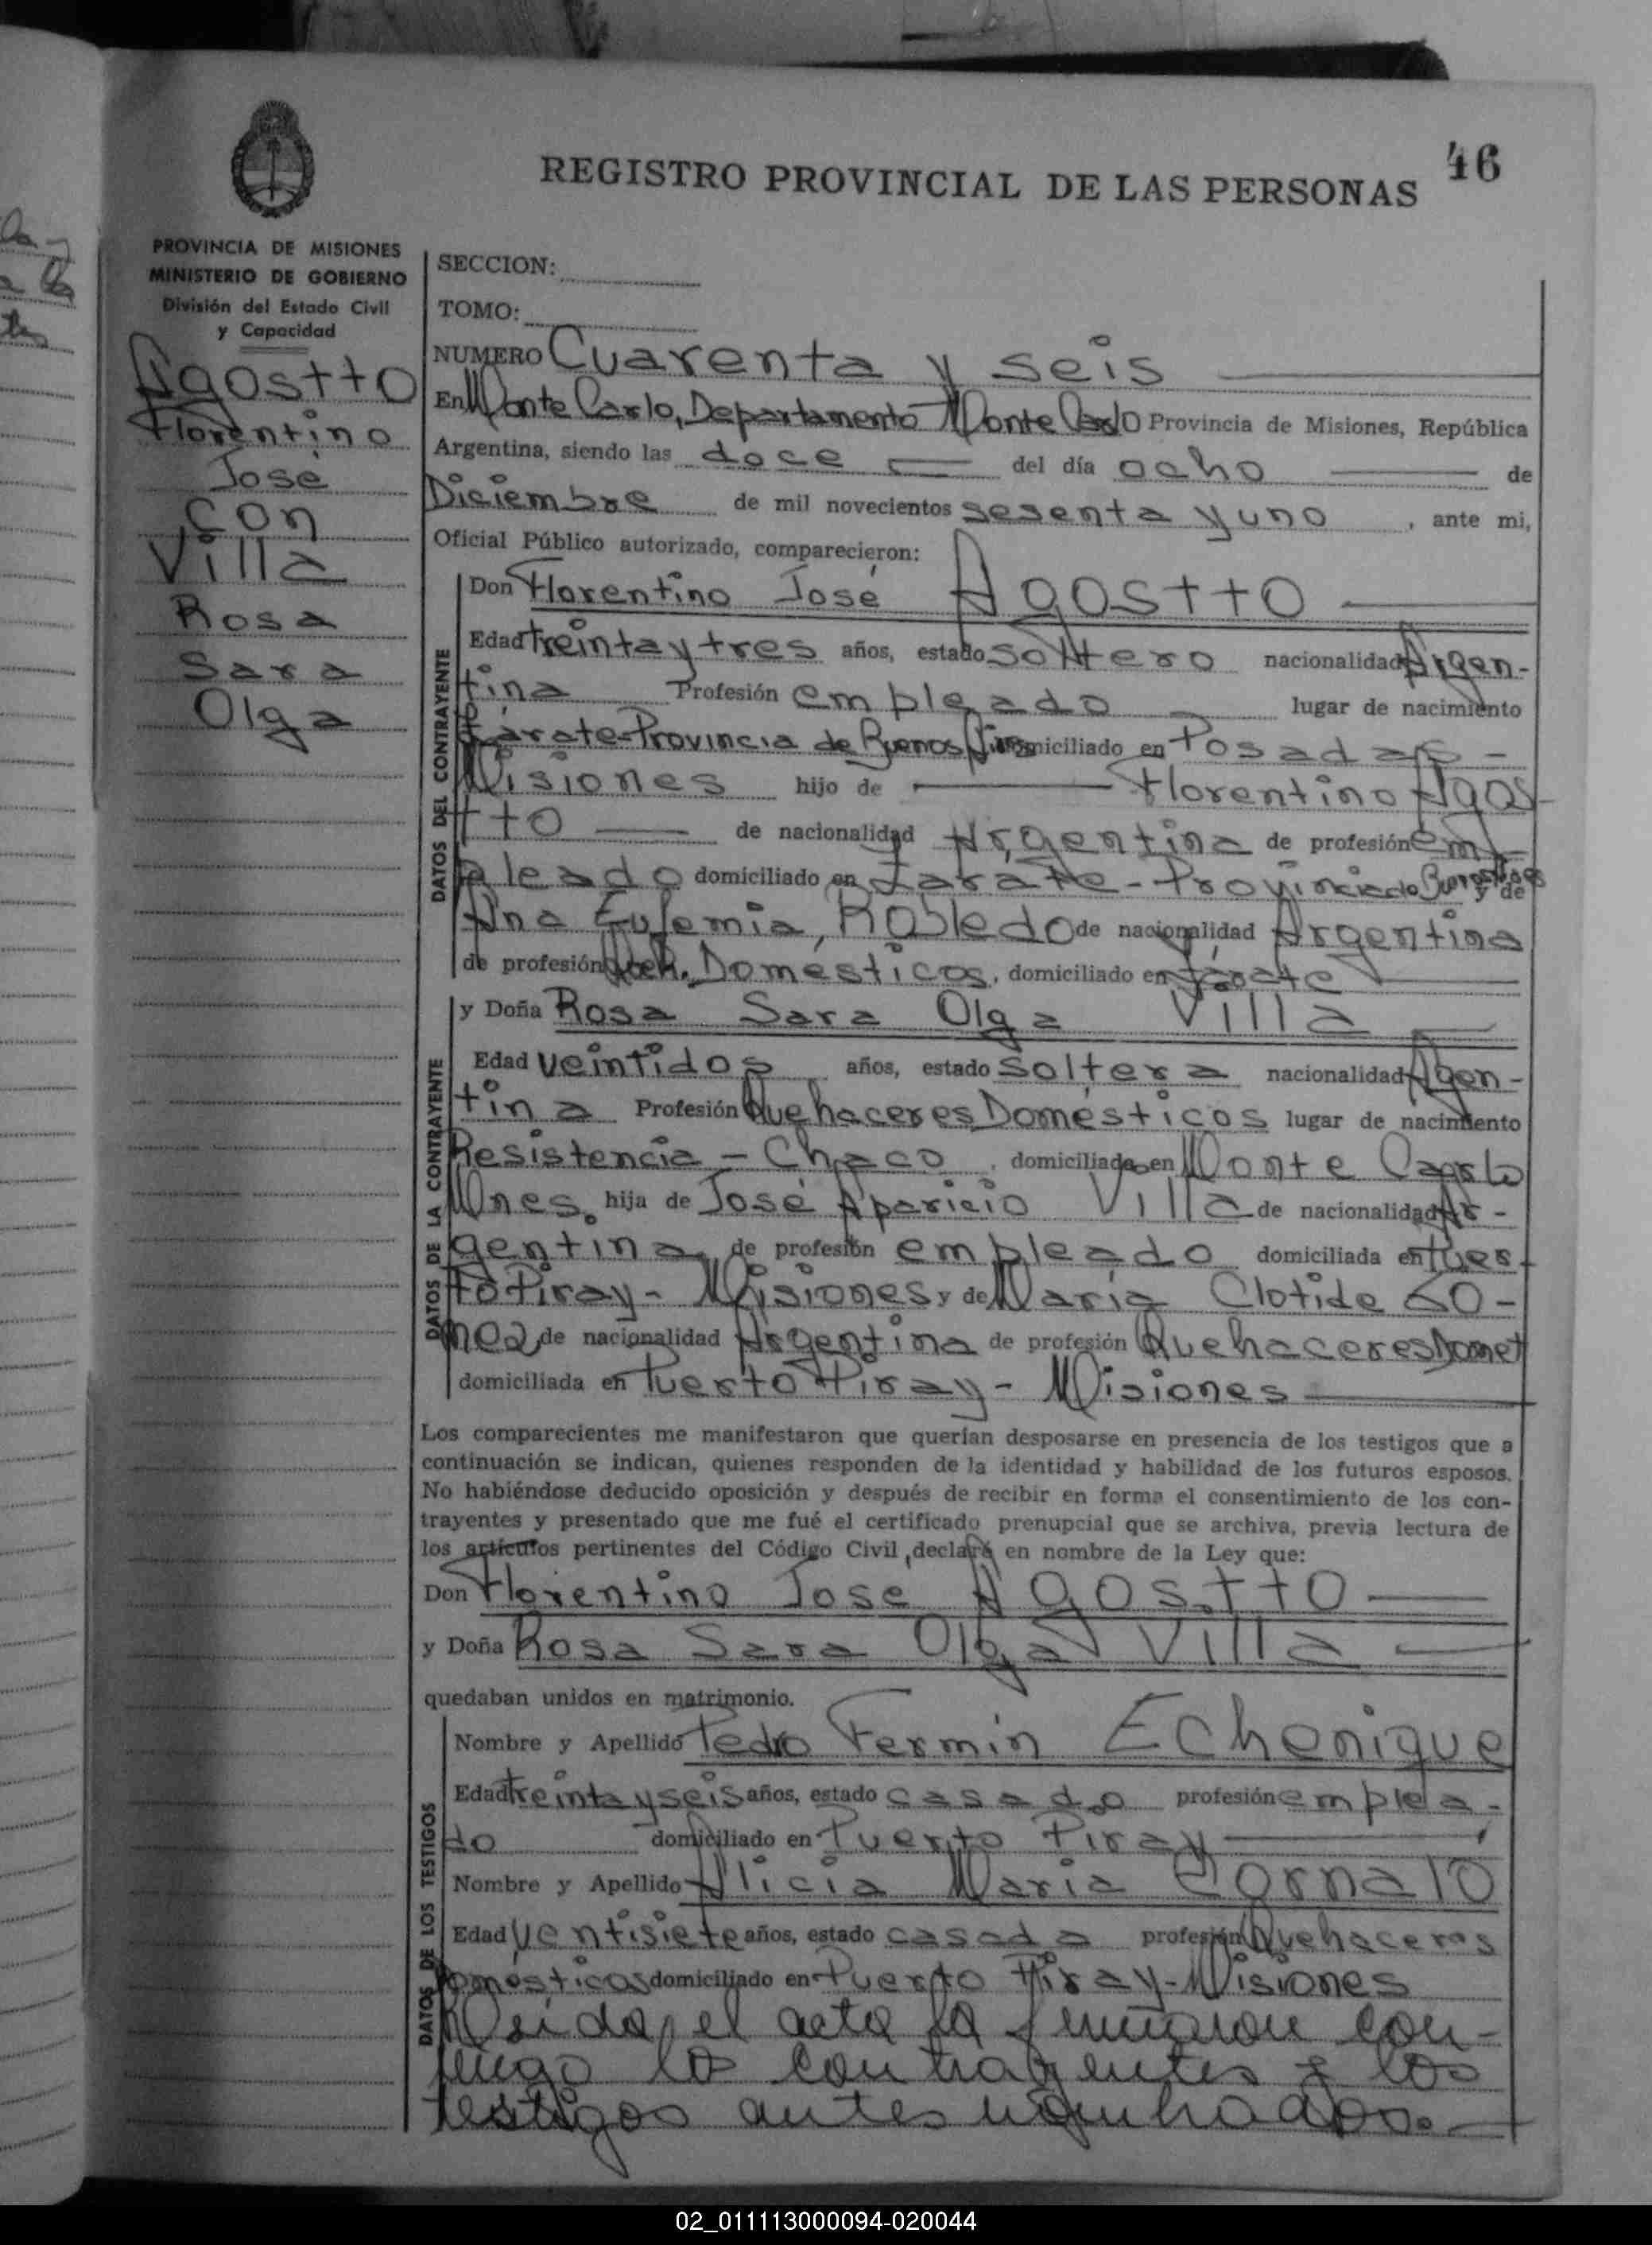 46
REGISTRO PROVINCIAL DE LAS PERSONAS
PROVINCIA DE MISIONES
MINISTERIO DE GOBIERNO
División del Estado Civil
y Capacidad
Agostto
Florentino
José
con
Villa
Rosa
Sara
Olga
SECCION:
TOMO:
NUMERO Cuarenta y seis
En Monte Carlo, Departamento Monte Carlo Provincia de Misiones, República
Argentina, siendo las doce del día ocho de
Diciembre de mil novecientos sesenta y uno, ante mi,
Oficial Público autorizado, comparecieron:
DATOS DEL CONTRAYENTE
Don Florentino José Agostto
Edad treinta y tres años, estado soltero nacionalidad Argen-
tina Profesión empleado lugar de nacimiento
Zárate-Provincia de Buenos Aires domiciliado en Posadas -
Misiones hijo de Florentino Agos-
tto de nacionalidad Argentina de profesión em-
pleado domiciliado en Zarate - Provincia de Buenos Aires y de
Ana Eufemia, Robledo de nacionalidad Argentina
de profesión Queh. Domésticos, domiciliado en Zarate
DATOS DE LA CONTRAYENTE
y Doña Rosa Sara Olga Villa
Edad veintidos años, estado soltera nacionalidad Agen-
tina Profesión Quehaceres Domésticos lugar de nacimiento
Resistencia - Chaco, domiciliada en Monte Carlo
Mnes. hija de José Aparicio Villa de nacionalidad Ar-
gentina de profesión empleado domiciliada en Puer-
to Piray - Misiones y de María Clotide Go-
mez de nacionalidad Argentina de profesión Quehaceres Domet
domiciliada en Puerto Piray - Misiones
Los comparecientes me manifestaron que querían desposarse en presencia de los testigos que a
continuación se indican, quienes responden de la identidad y habilidad de los futuros esposos.
No habiéndose deducido oposición y después de recibir en forma el consentimiento de los con-
trayentes y presentado que me fué el certificado prenupcial que se archiva, previa lectura de
los artículos pertinentes del Código Civil, declaré en nombre de la Ley que:
Don Florentino José Agostto
y Doña Rosa Sara Olga Villa
quedaban unidos en matrimonio.
DATOS DE LOS TESTIGOS
Nombre y Apellido Pedro Fermín Echenique
Edad treinta y seis años, estado casado profesión emplea-
do domiciliado en Puerto Piray
Nombre y Apellido Alicia Maria Cornalo
Edad ventisiete años, estado casada profesión Quehaceres
Domésticos domiciliado en Puerto Piray - Misiones
Leida el acta la firmaron con-
migo los contrayentes y los
testigos antes nombrados.
02_011113000094-020044